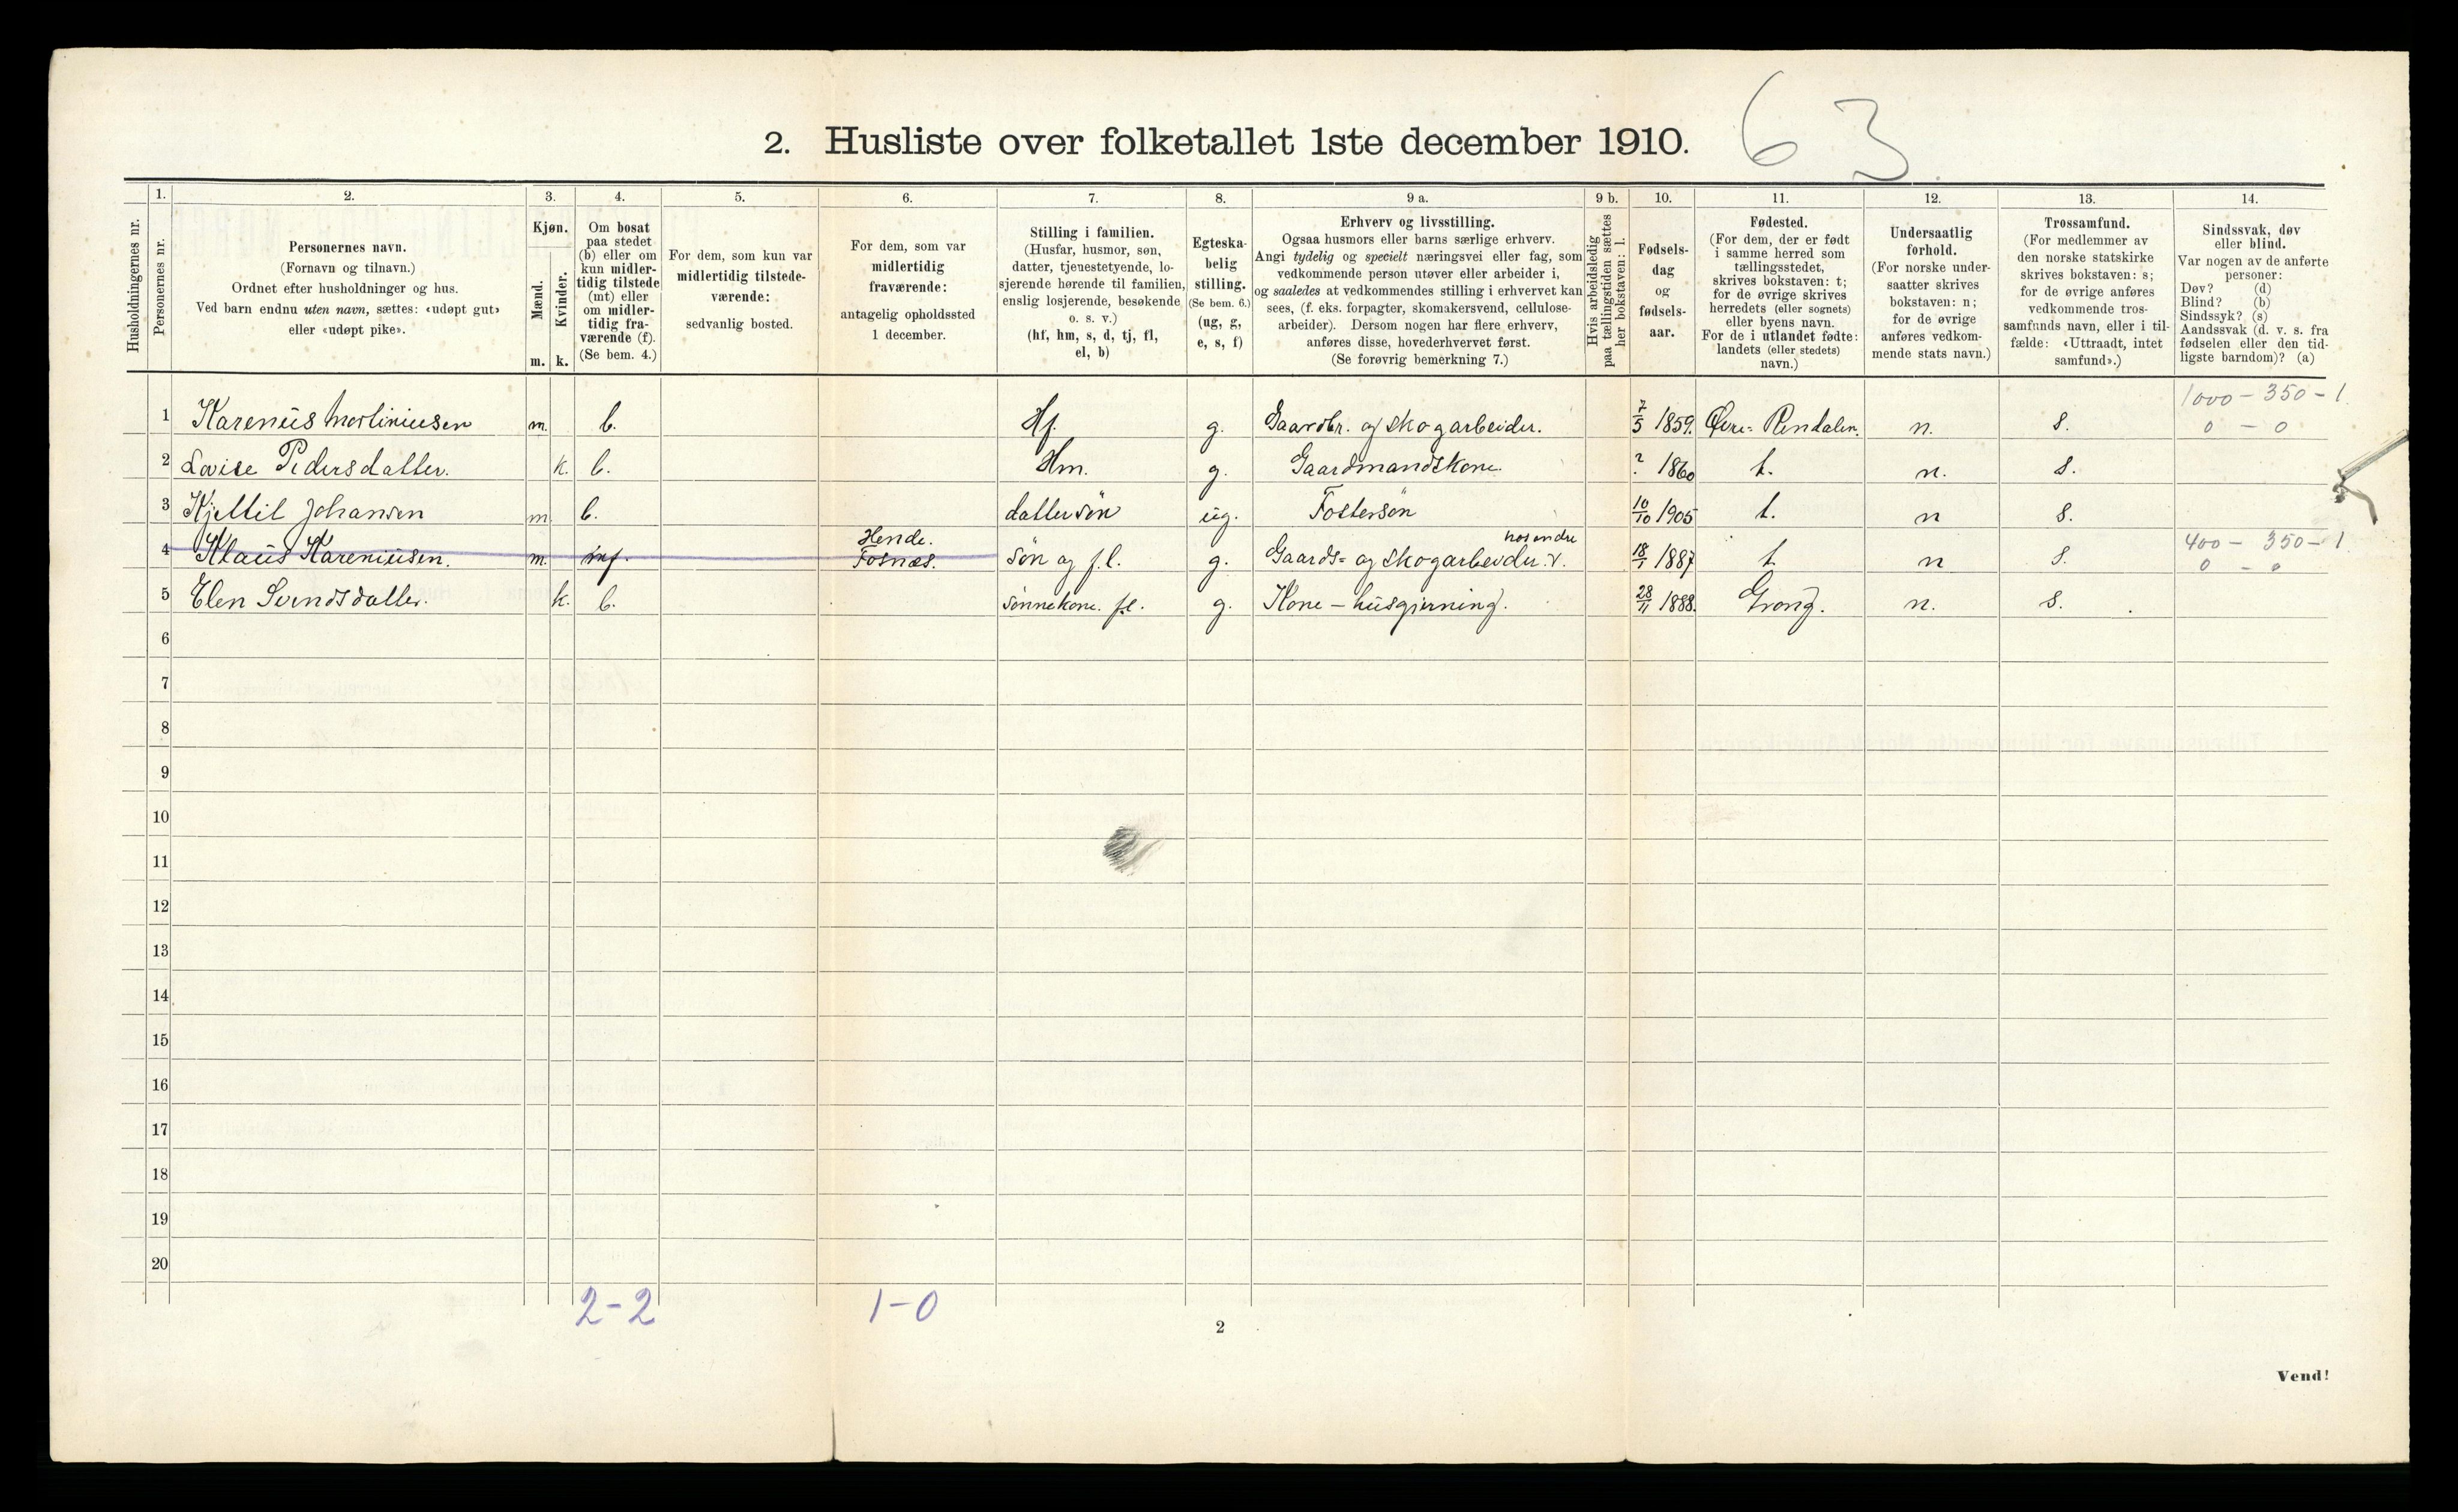 63
2. Husliste over folketallet 1ste december 1910.
Husholdningernes nr.
1.
Personernes nr.
2.
Personernes navn.
(Fornavn og tilnavn.)
Ordnet efter husholdninger og hus.
Ved barn endnu uten navn, sættes: «udøpt gut»
eller «udøpt pike».
3.
Kjøn.
Mænd.
m.
Kvinder.
k.
4.
Om bosat
paa stedet
(b) eller om
kun midler-
tidig tilstede
(mt) eller
om midler-
tidig fra-
værende (f).
(Se bem. 4.)
5.
For dem, som kun var
midlertidig tilstede-
værende:
sedvanlig bosted.
6.
For dem, som var
midlertidig
fraværende:
antagelig opholdssted
1 december.
7.
Stilling i familien.
(Husfar, husmor, søn,
datter, tjenestetyende, lo-
sjerende hørende til familien,
enslig losjerende, besøkende
o. s. v.)
(hf, hm, s, d, tj, fl,
el, b)
8.
Egteska-
belig
stilling.
(Se bem. 6.)
(ug, g,
e, s, f)
9 a.
Erhverv og livsstilling.
Ogsaa husmors eller barns særlige erhverv.
Angi tydelig og specielt næringsvei eller fag, som
vedkommende person utøver eller arbeider i,
og saaledes at vedkommendes stilling i erhvervet kan
sees, (f. eks. forpagter, skomakersvend, cellulose-
arbeider). Dersom nogen har flere erhverv,
anføres disse, hovederhvervet først.
(Se forøvrig bemerkning 7.)
9 b.
Hvis arbeidsledig
paa tællingstiden sættes
her bokstaven: l.
10.
Fødsels-
dag
og
fødsels-
aar.
11.
Fødested.
(For dem, der er født
i samme herred som
tællingsstedet,
skrives bokstaven: t;
for de øvrige skrives
herredets (eller sognets)
eller byens navn.
For de i utlandet fødte:
landets (eller stedets)
navn.)
12.
Undersaatlig
forhold.
(For norske under-
saatter skrives
bokstaven: n;
for de øvrige
anføres vedkom-
mende stats navn.)
13.
Trossamfund.
(For medlemmer av
den norske statskirke
skrives bokstaven: s;
for de øvrige anføres
vedkommende tros-
samfunds navn, eller i til-
fælde: «Uttraadt, intet
samfund».)
14.
Sindssvak, døv
eller blind.
Var nogen av de anførte
personer:
Døv? (d)
Blind? (b)
Sindssyk? (s)
Aandssvak (d. v. s. fra
fødselen eller den tid-
ligste barndom)? (a)
1000 - 350 - 1
1 Karenius Martiniusen m. b. Hf. g. Gaardbr. og skogarbeider. 7/5 1859. Øvre-Rendalen. n. s. 0 - 0
2 Lovise Pedersdatter. k. b. Hm. g. Gaardmandskone. ? 1860 t. n. s.
3 Kjettil Johansen m b. dattersön ug. Fostersön 10/10 1905 t. n s.
Hende. hos andre 400 - 350 - 1
4 Klaus Kareniusen. m. Fosnæs. sön og f.l. g. Gaards- og skogarbeider. v. 18/1 1887 t. n s. 0 - 0
5 Elen Svendsdatter. k. b. sønnekone. f.l. g. Kone - husgjerning. 28/11 1888. Grong. n. s.
6
7
8
9
10
11
12
13
14
15
16
17
18
19
20
2-2 1-0
2
Vend!